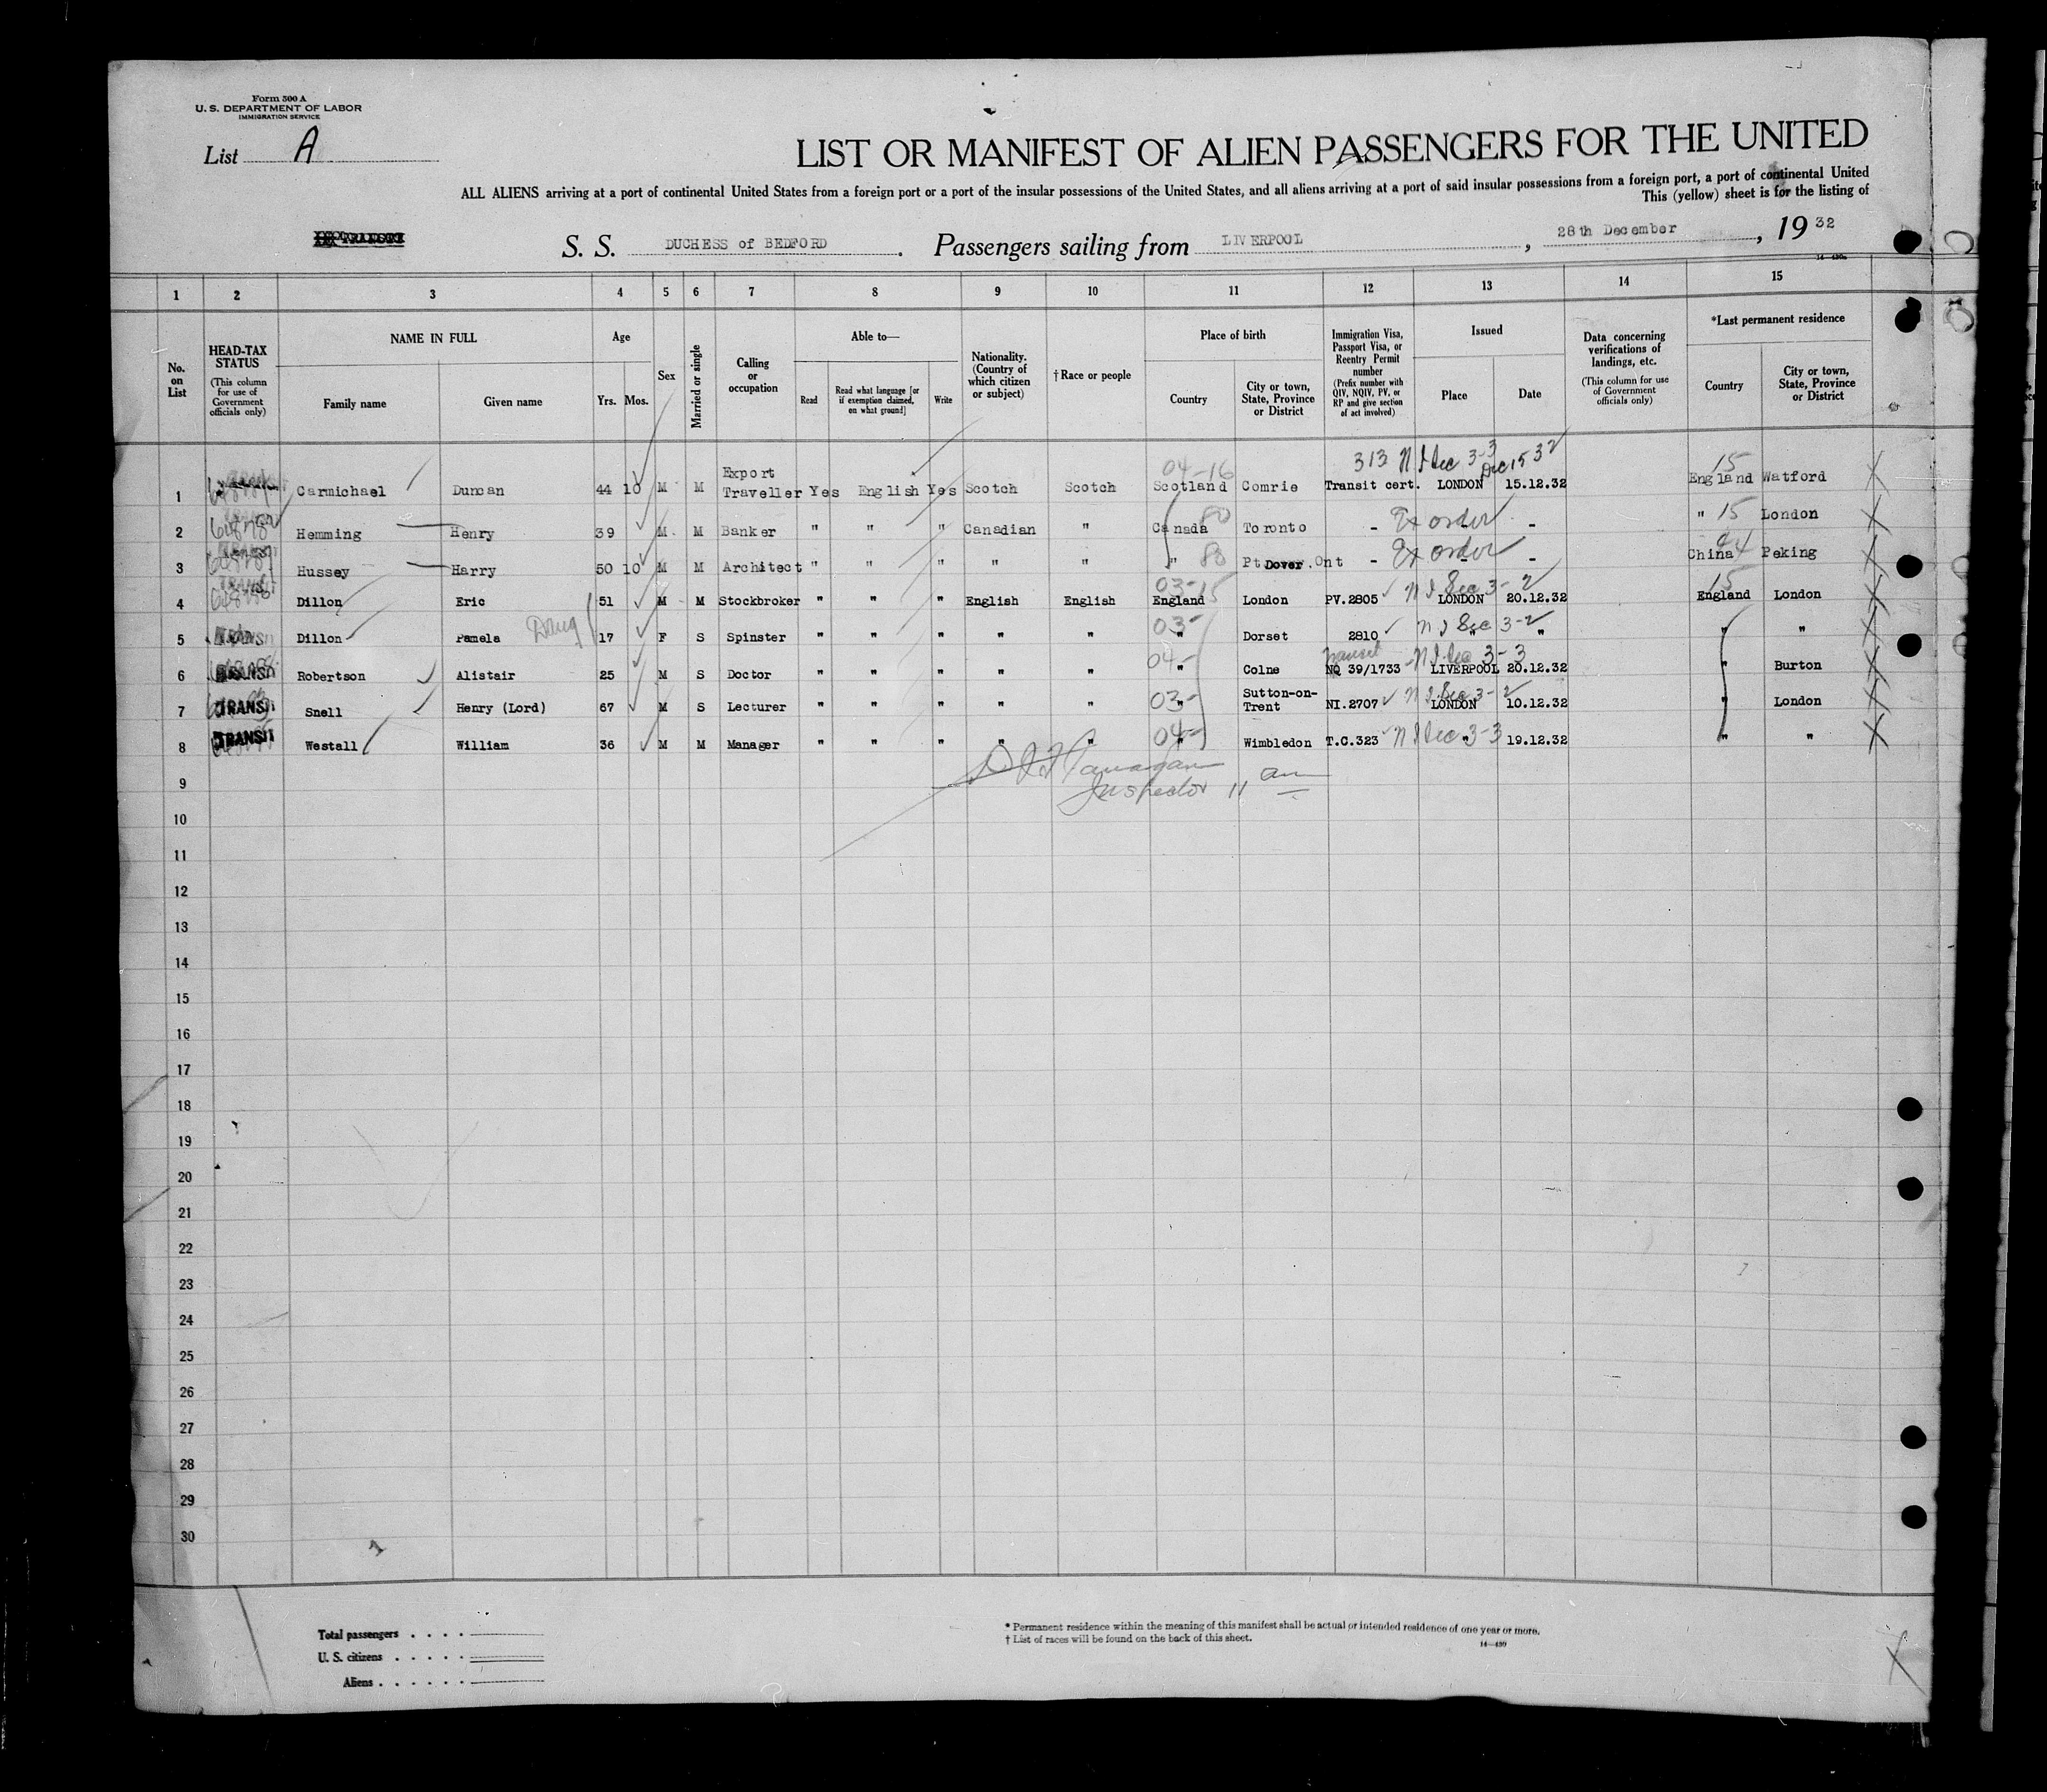 Form 500 A
U. S. DEPARTMENT OF LABOR
IMMIGRATION SERVICE
List A
LIST OR MANIFEST OF ALIEN PASSENGERS FOR THE UNITED
ALL ALIENS arriving at a port of continental United States from a foreign port or a port of the insular possessions of the United States, and all aliens arriving at a port of said insular possessions from a foreign port, a port of continental United
This (yellow) sheet is for the listing of
S. S. DUCHESS of BEDFORD. Passengers sailing from LIVERPOOL, 28th December, 1932
1 2 3 4 5 6 7 8 9 10 11 12 13 14 15
No. on List
HEAD-TAX STATUS
(This column for use of Government officials only)
NAME IN FULL
Family name Given name
Age
Yrs. Mos.
Sex
Married or single
Calling or occupation
Able to—
Read
Read what language [or if exemption claimed, on what ground]
Write
Nationality. (Country of which citizen or subject)
†Race or people
Place of birth
Country
City or town, State, Province or District
Immigration Visa, Passport Visa, or Reentry Permit number
(Prefix number with QIV, NQIV, PV, or RP and give section of act involved)
Issued
Place Date
Data concerning verifications of landings, etc.
(This column for use of Government officials only)
*Last permanent residence
Country
City or town, State, Province or District
313 N I Sec 3-3 Dec 15 32
1 Carmichael Duncan 44 10 M M Export Traveller Yes English Yes Scotch Scotch 04-16 Scotland Comrie Transit cert. LONDON 15.12.32 15 England Watford
2 Hemming Henry 39 M M Banker " " " Canadian " 80 Canada Toronto - Ex order - " 15 London
3 Hussey Harry 50 10 M M Architect " " " " " " 80 Pt Dover.Ont - Ex order - China Peking
4 Dillon Eric 51 M M Stockbroker " " " English English 03-15 England London PV.2805 N I Sec 3-2 LONDON 20.12.32 15 England London
5 Dillon Pamela Daug 17 F S Spinster " " " " " 03- " Dorset 2810 N I Sec 3-2 " " " "
6 TRANSIT Robertson Alistair 25 M S Doctor " " " " " 04- " Colne Transit NQ 39/1733 N I Sec 3-3 LIVERPOOL 20.12.32 " Burton
7 TRANSIT Snell Henry (Lord) 67 M S Lecturer " " " " " 03- " Sutton-on-Trent NI.2707 N I Sec 3-2 LONDON 10.12.32 " London
8 TRANSIT Westall William 36 M M Manager " " " " " 04- " Wimbledon T.C.323 N I Sec 3-3 " 19.12.32 " "
9
Inspector 11 am
10
11
12
13
14
15
16
17
18
19
20
21
22
23
24
25
26
27
28
29
30
Total passengers
U. S. citizens
Aliens
* Permanent residence within the meaning of this manifest shall be actual or intended residence of one year or more.
† List of races will be found on the back of this sheet.
14—430